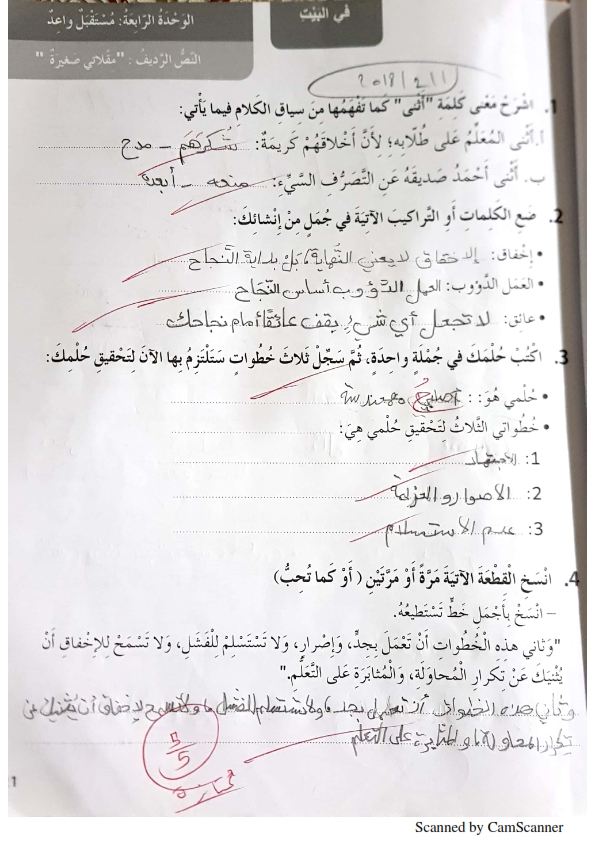 في البَيْتِ
الوَحْدَةُ الرّابِعَةُ: مُسْتَقْبَلٌ واعِدٌ
النَّصُّ الرَّديفُ: "مِقْلاتي صَغيرَةٌ"
2018/2/11
1. اشْرَحْ مَعْنى كَلِمَةِ "أَثْنى" كَما تَفْهَمُها مِنَ سِياقِ الكَلامِ فيما يَأْتي:
أ. أَثْنى المُعَلِّمُ عَلى طُلّابِهِ؛ لِأَنَّ أَخْلاقَهُمْ كَريمَةٌ: شكرهم - مدح
ب. أَثْنى أَحْمَدُ صَديقَهُ عَنِ التَّصَرُّفِ السَّيِّءِ: منعه - أبعده
2. ضَعِ الكَلِماتِ أَوِ التَّراكيبَ الآتِيَةَ في جُمَلٍ مِنْ إِنْشائِكَ:
• إخْفاق: الإخفاق لا يعني النهاية، بل بداية النجاح
• العَمَل الدَّؤوب: العمل الدؤوب أساس النجاح
• عائِق: لا تجعل أي شيء يقف عائقًا أمام نجاحك
3. اكْتُبْ حُلْمَكَ في جُمْلَةٍ واحَدَةٍ، ثُمَّ سَجِّلْ ثَلاثَ خُطُواتٍ سَتَلْتَزِمُ بِها الآنَ لِتَحْقيقِ حُلْمِكَ:
• حُلْمي هُوَ: : أصبح مهندسة
• خُطُواتي الثَّلاثُ لِتَحْقيقِ حُلْمي هِيَ:
1: الاجتهاد
2: الأصوار و العزيمة
3: عدم الأستسلام
4. انْسَخِ الْقِطْعَةَ الآتِيَةَ مَرَّةً أَوْ مَرَّتَيْنِ ( أَوْ كَما تُحِبُّ)
– انْسَخْ بِأَجْمَلِ خَطٍّ تَسْتَطيعُهُ.
"وَثاني هذِهِ الْخُطُواتِ أَنْ تَعْمَلَ بِجِدٍّ، وَإِصْرارٍ، وَلا تَسْتَسْلِمْ لِلْفَشَلِ، وَلا تَسْمَحْ لِلإِخْفاقِ أَنْ
يُثْنِيَكَ عَنْ تِكرارِ الْمُحاوَلَةِ، وَالْمُثابَرَةِ عَلى التَّعَلُّمِ."
وثاني هذه الخطوات أن تعمل بجد، ولا تستسلم للفشل، ولا تسمح لإخفاق أن يثنيك عن
تكرار المحاولة، والمثابرة على التعلم
5/5
ممتازة
1
Scanned by CamScanner